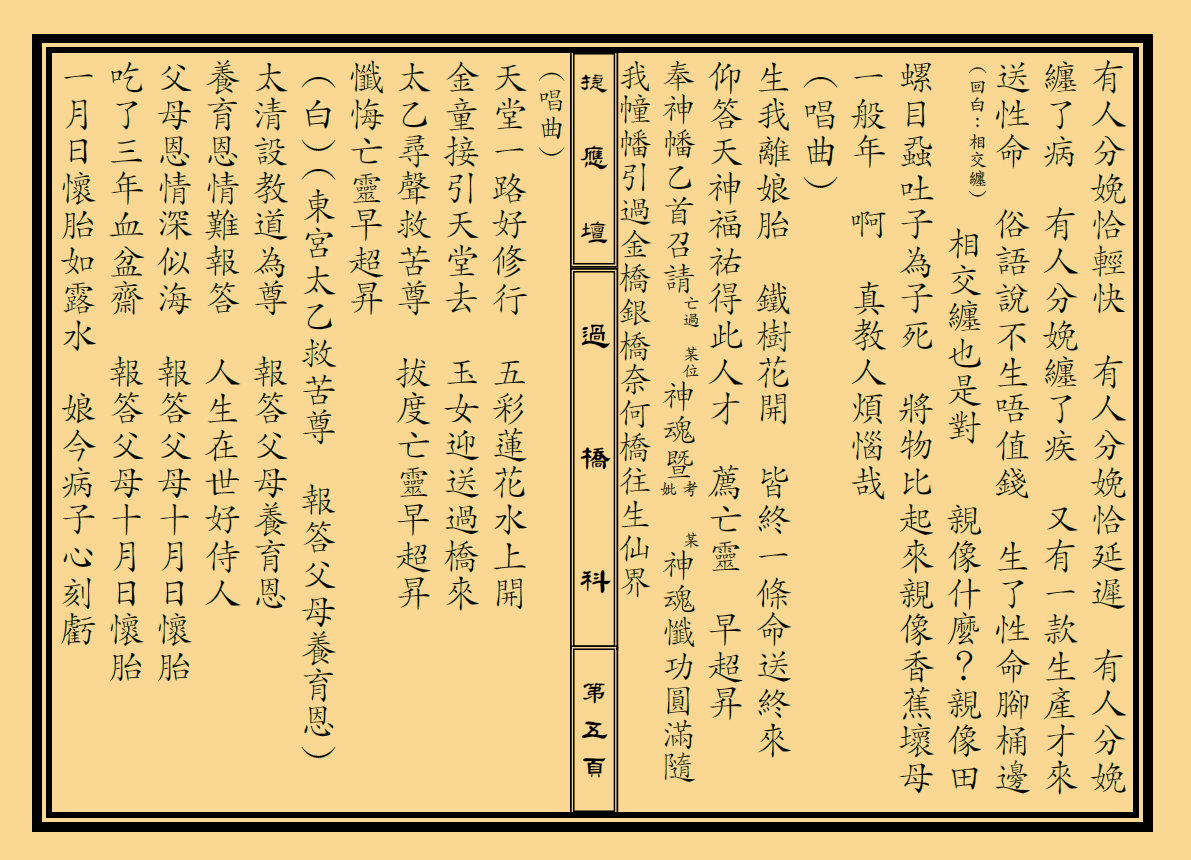 有人分娩恰輕快　有人分娩恰延遲　有人分娩
纏了病　有人分娩纏了疾　又有一款生產才來
送性命　俗語說不生唔值錢　生了性命腳桶邊
（回白：相交纏）　相交纏也是對　親像什麼？親像田
螺目蝨吐子為子死　將物比起來親像香蕉壞母
一般年　啊　真教人煩惱哉
（唱曲）
生我離娘胎　鐵樹花開　皆終一條命送終來
仰答天神福祐得此人才　薦亡靈　早超昇
奉神幡乙首召請亡過　某位神魂暨考妣　某神魂懺功圓滿隨
我幢幡引過金橋銀橋奈何橋往生仙界
捷應壇
過橋科
第五頁
（唱曲）
天堂一路好修行　五彩蓮花水上開
金童接引天堂去　玉女迎送過橋來
太乙尋聲救苦尊　拔度亡靈早超昇
懺悔亡靈早超昇
（白）（東宮太乙救苦尊　報答父母養育恩）
太清設教道為尊　報答父母養育恩
養育恩情難報答　人生在世好侍人
父母恩情深似海　報答父母十月日懷胎
吃了三年血盆齋　報答父母十月日懷胎
一月日懷胎如露水　娘今病子心刻虧